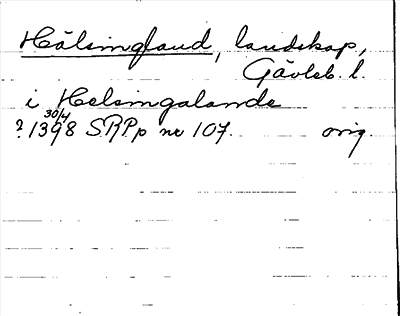 Hälsingland, landskap,
Gävleb. l.
i Helsingalande
30/4
? 1398 SRPp nr 107. orig.